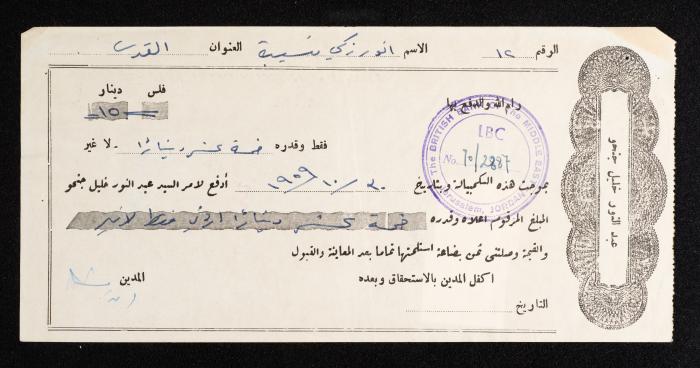 الرقم ١٢ الاسم انور زكي نسيبة العنوان القدس
فلس دينار
١٥
رام الله والدفع بها
فقط وقدره خمسة عشر دينارا لا غير
بموجب هذه الكمبيالة وبتاريخ ٣٠/١٠/١٩٥٩ أدفع لامر السيد عبد النور خليل جنحو
المبلغ المرقوم اعلاه وقدره خمسة عشر دينارا اردني فقط لا غير
والقيمة وصلتني ثمن بضاعة استلمتها تماما بعد المعاينة والقبول
اكفل المدين بالاستحقاق وبعده
المدين
التاريخ
The BRITISH BANK OF The MIDDLE EAST
LBC
No. 70/2887
Jerusalem, JORDAN
عبد النور خليل جنحو